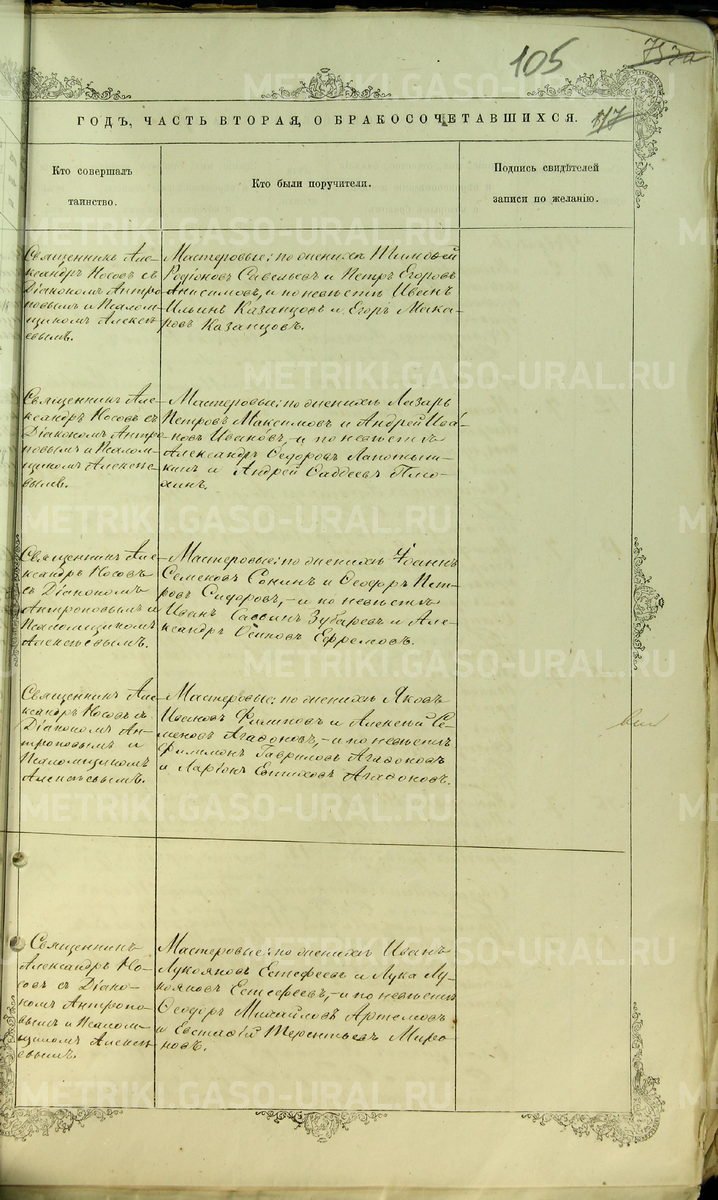 105
757а
117
ГОДЪ, ЧАСТЬ ВТОРАЯ, О БРАКОСОЧЕТАВШИХСЯ.
Кто совершалъ
таинство.
Кто были поручители.
Подпись свидѣтелей
записи по желанію.
Священникъ Але-
ксандръ Носовъ съ
Діакономъ Антро-
повымъ и Псалом-
щикомъ Алексѣ-
евымъ.
Мастеровые: по женихѣ Тимофей
Родіоновъ Савельевъ и Петръ Егоровъ
Анисимовъ, и по невѣстѣ Иванъ
Ильинъ Казанцовъ и Егоръ Мака-
ровъ Казанцовъ.
Священникъ Але-
ксандръ Носовъ съ
Діакономъ Антро-
повымъ и Псалом-
щикомъ Алексѣе-
вымъ.
Мастеровые: по женихѣ Лазарь
Петровъ Максимовъ и Андрей Ива-
новъ Ивановъ, – и по невѣстѣ
Александръ Ѳедоровъ
и Андрей
Священникъ Але-
ксандръ Носовъ
съ Діакономъ
Антроповымъ и
Псаломщикомъ
Алексѣевымъ.
Мастеровые: по женихѣ Іоаннъ
Семеновъ Сонинъ и Ѳеодоръ Пет-
ровъ Сидоровъ, – и по невѣстѣ
Иванъ Саввинъ Зубаревъ и Але-
ксандръ Осиповъ Ефремовъ.
Священникъ Але-
ксандръ Носовъ съ
Діакономъ Ан-
троповымъ и
Псаломщикомъ
Алексѣевымъ.
Мастеровые: по женихѣ Яковъ
Ивановъ Филиповъ и Алексѣй Се-
меновъ Агафоновъ, – и по невѣстѣ
Филимонъ Гавриловъ Агафоновъ
и Ларіонъ Евтиховъ Агафоновъ.
Священникъ
Александръ Но-
совъ съ Діако-
номъ Антропо-
вымъ и Псалом-
щикомъ Алексѣ-
евымъ.
Мастеровые: по женихѣ Иванъ
Лукояновъ Естефеевъ и Лука Лу-
кояновъ Естефеевъ, – и по невѣстѣ
Ѳеодоръ Михайловъ Артемовъ
и Евстафій Терентьевъ Миро-
новъ.
METRIKI.GASO-URAL.RU